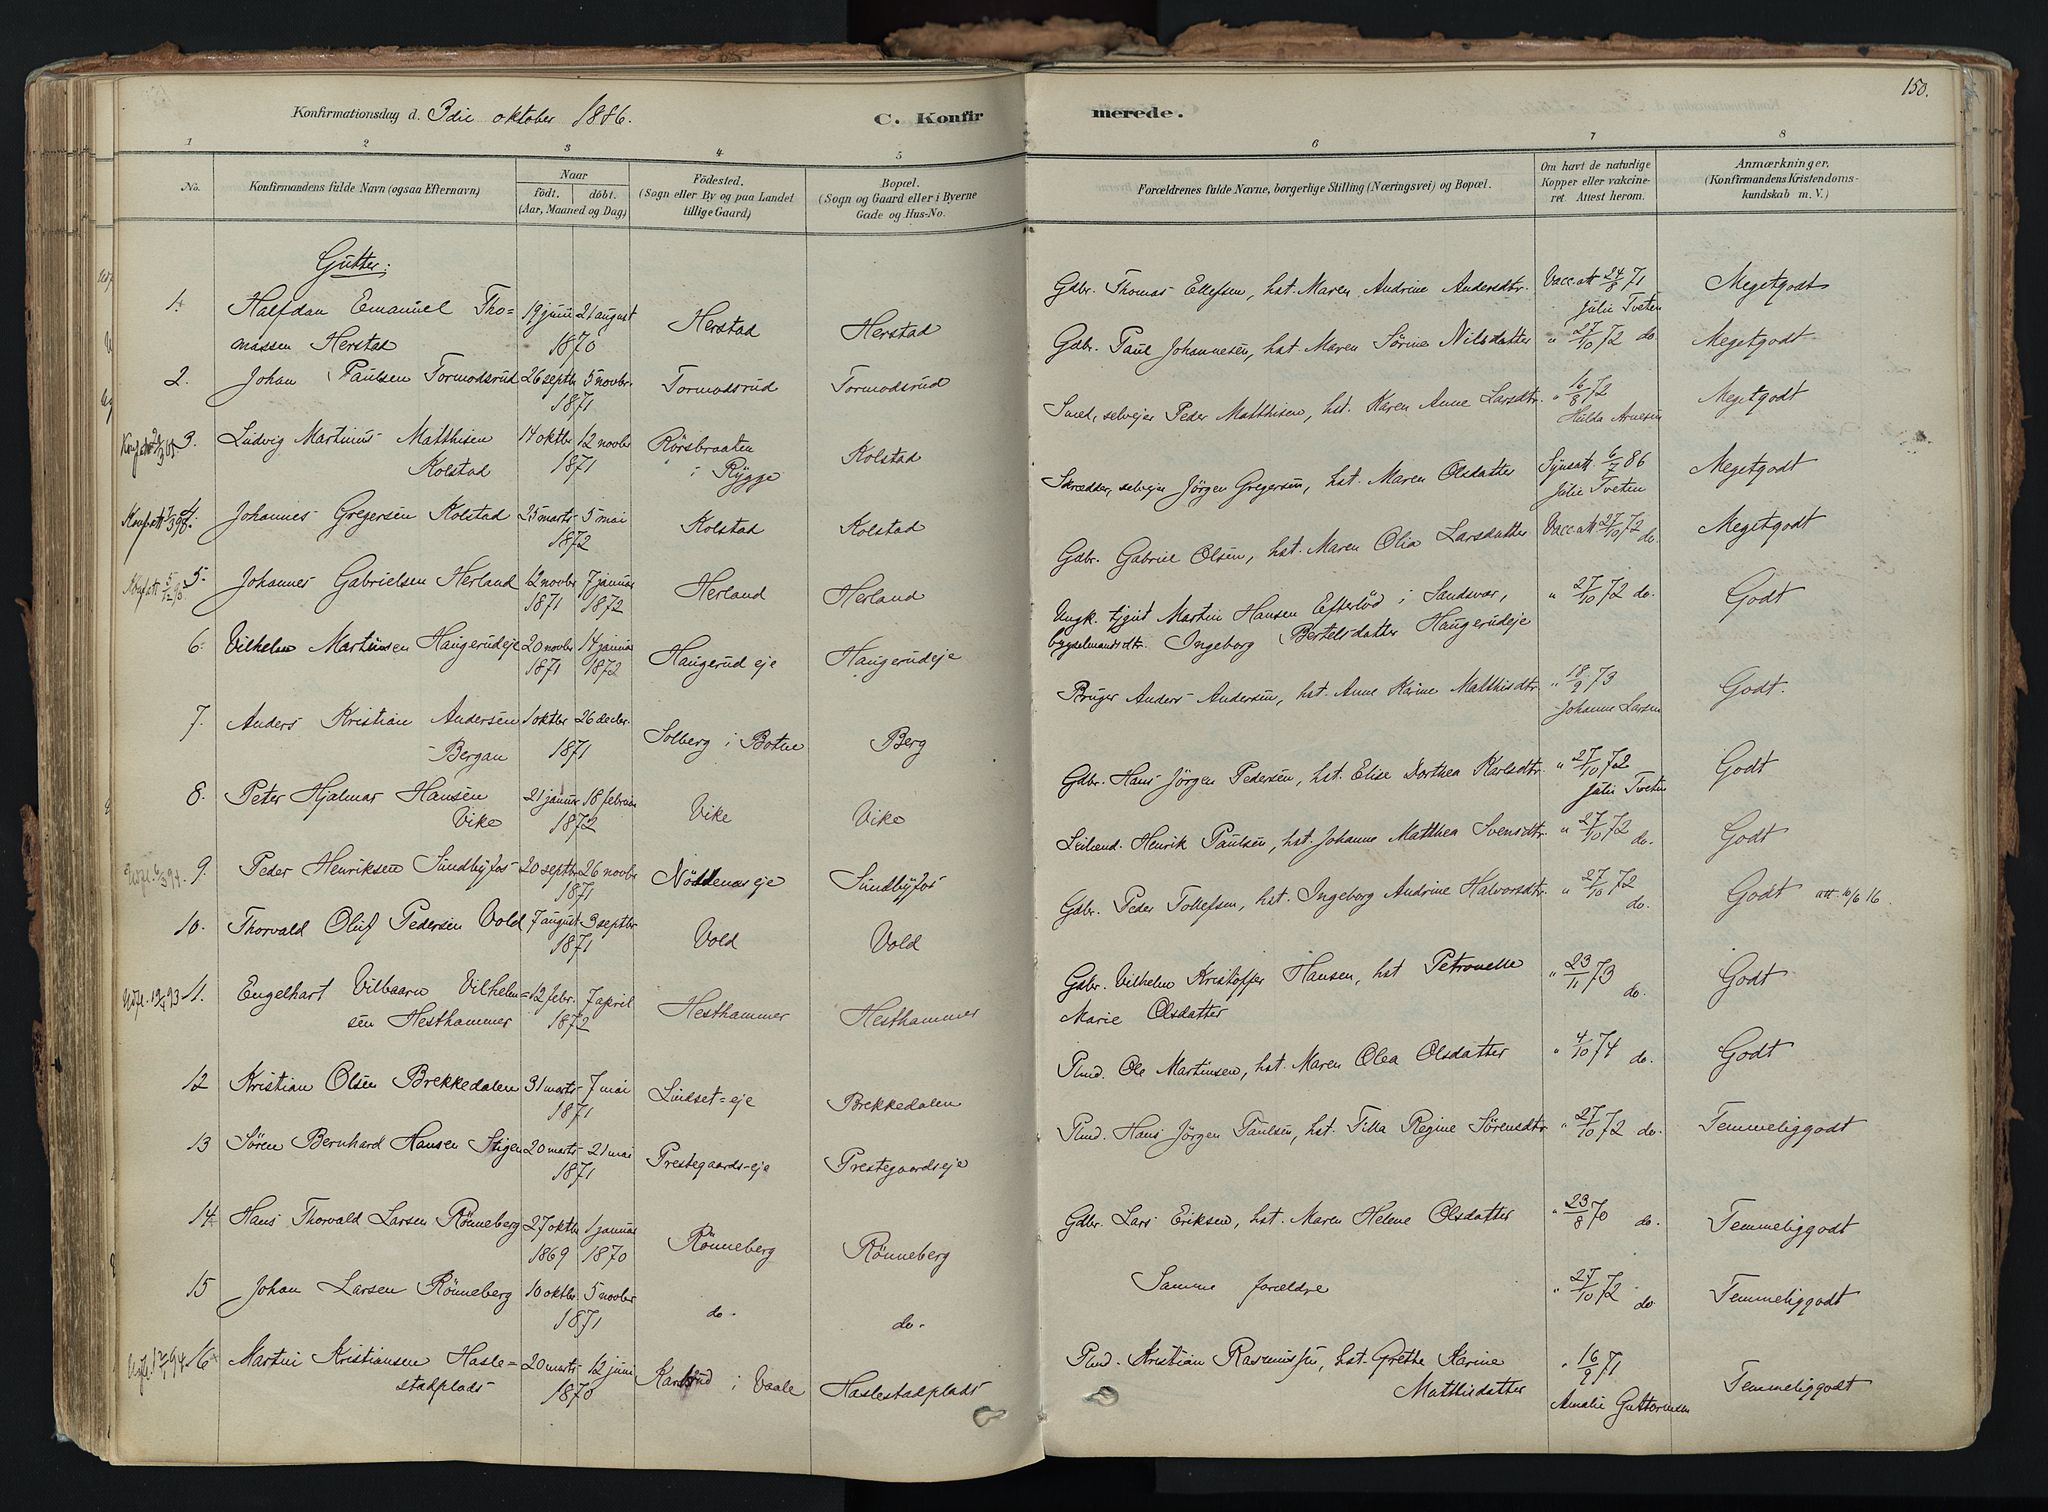 150.
Konfirmationsdag d. 3die oktober 1886.
C. Konfirmerede.
1 2 3 4 5 6 7 8
No.
Konfirmandens fulde Navn (ogsaa Efternavn)
Naar
födt. döbt.
(Aar, Maaned og Dag)
Födested.
(Sogn eller By og paa Landet
tillige Gaard)
Bopæl.
(Sogn og Gaard eller i Byerne
Gade og Hus-No.
Forældrenes fulde Navne, borgerlige Stilling (Næringsvei) og Bopæl.
Om havt de naturlige
Kopper eller vakcine-
ret. Attest herom.
Anmærkninger.
(Konfirmandens Kristendoms-
kundskab m. V.)
Gutter:
1. Halfdan Emanuel Tho= 19 juni 21 august Herstad Herstad Gdbr. Thomas Ellefsen, hst. Maren Andrine Andersdtr. Vacc. att 24/8 71 Megetgodt
massen Herstad 1870 Julie Tveten
2. Johan Paulsen Tormodsrud 26 septbr 5 novbr. Tormodsrud Tormodsrud Gdbr. Paul Johannesen, hst. Maren Sörine Nilsdatter " 27/10 72 do. Megetgodt
1871
3. Ludvig Martinus Matthisen 14 oktbr 12 novbr Rörsbraaten Kolstad Smed, selvejer Peder Matthisen, hst. Karen Anne Larsdtr. " 16/8 72 Megetgodt
Kolstad 1871 i Rygge Hulda Arnesen
4. Johannes Gregersen Kolstad 25 marts 5 mai Kolstad Kolstad Skrædder, selvejer Jörgen Gregersen, hst. Maren Olsdatter Synsatt. 6/7 86 Megetgodt
1872 Julie Tveten
5. Johannes Gabrielsen Herland 12 novbr 7 januar Herland Herland Gdbr. Gabriel Olsen, hst. Maren Olia Larsdatter Vacc. att 27/10 72 do. Megetgodt
1871 1872
6. Vilhelm Martinsen Haugerudeje 20 novbr 14 januar Haugerud eje Haugerudeje Ungk. tjgut Martin Hansen Efterlöd i Sandsvær, " 27/10 72 do. Godt
1871 1872 Ingeborg Bertelsdatter Haugerudeje
7. Anders Kristian Andersen 1 oktbr 26 decbr. Solberg i Botne Berg Bruger Anders Andersen, hst. Anne Karine Matthisdtr. " 18/9 73 Godt.
Bergan 1871 Johanne Larsen
8. Peter Hjalmar Hansen 21 januar 18 februar Vike Vike Gdbr. Hans Jörgen Pedersen, hst. Elise Dorthea Karlsdtr. " 27/10 72 Godt
Vike 1872 Julie Tveten
9. Peder Henriksen Sundbyfos 20 septbr 26 novbr Nöddenæs eje Sundbyfos Leilænd. Henrik Paulsen, hst. Johanne Matthea Svensdtr. " 27/10 72 do. Godt
1871
10. Thorvald Oluf Pedersen Vold 7 august 3 septbr Vold Vold Gdbr. Peder Tollefsen, hst. Ingeborg Andrine Halvorsdtr. " 27/10 72 do. Godt att. 10/6 16.
1871
11. Engelhart Vilbaarn Vilhelm= 12 febr. 7 april Hesthammer Hesthammer Gdbr. Vilhelm Kristoffer Hansen, hst Petronelle " 23/11 73 do. Godt
sen Hesthammer 1872 Marie Olsdatter
12 Kristian Olsen Brekkedalen 31 marts 7 mai Lindset=eje Brekkedalen Plmd. Ole Martinsen, hst. Maren Olea Olsdatter " 4/10 74 do. Godt
1871
13 Sören Bernhard Hansen Stigen 20 marts 21 mai Prestegaards-eje Prestegaardseje Plmd. Hans Jörgen Paulsen, hst. Tilla Regine Sörensdtr. " 27/10 72 do. Temmeliggodt
1871
14 Hans Thorvald Larsen Rönneberg 27 oktbr 1 januar Rönneberg Rönneberg Gdbr. Lars Eriksen, hst. Maren Helene Olsdatter " 23/8 70 do. Temmeliggodt
1869 1870
15 Johan Larsen Rönneberg 10 oktbr. 5 novbr do. do. Samme forældre " 27/10 72 do Temmeliggodt
1871
16 Martin Kristiansen Hasle= 20 marts 12 juni i Vaale Haslestadplads Plmd. Kristian Rasmussen, hst. Grethe Karine " 16/9 71 Temmeliggodt
stadplads 1870 Matthisdatter Amalie Guttormsen